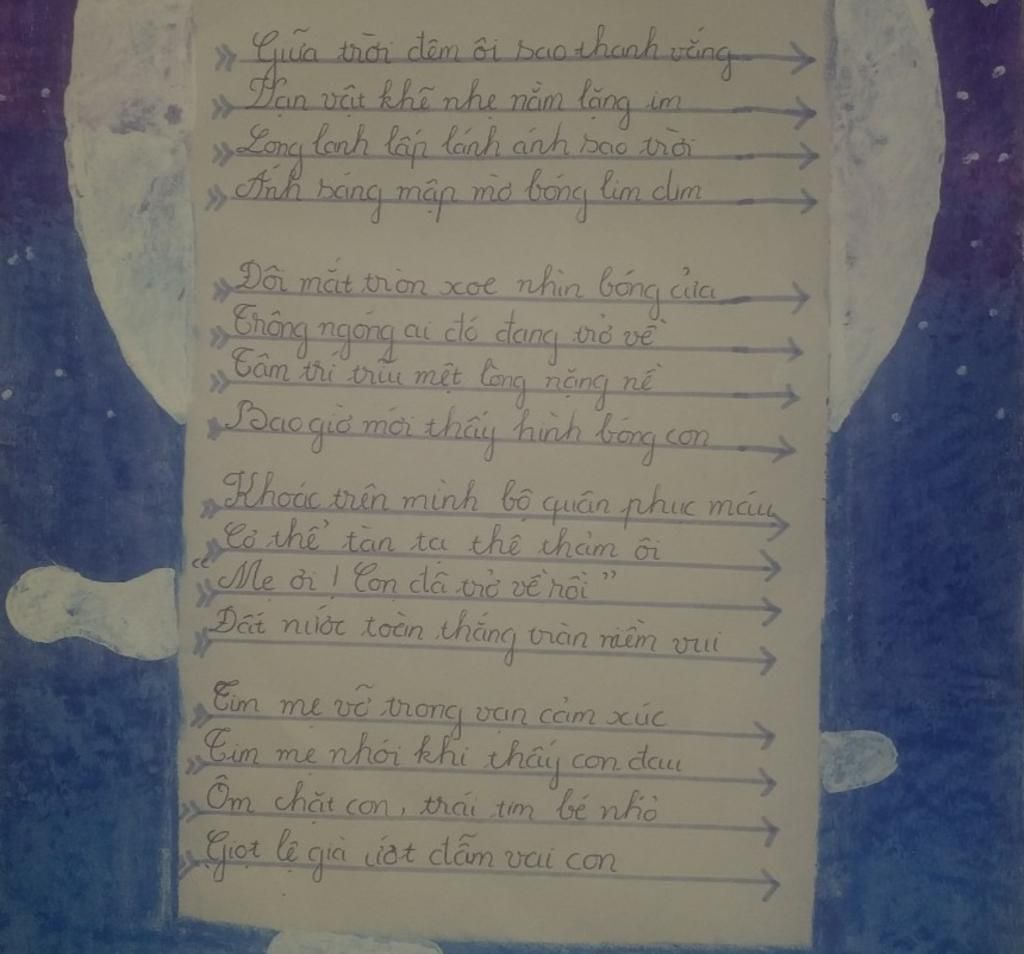 Giữa trời đêm ôi sao thanh vắng
Vạn vật khẽ nhẹ nằm lặng im
Long lanh lấp lánh ánh sao trời
Ánh sáng mập mờ bóng lim dim
Đôi mắt tròn xoe nhìn bóng cửa
Trông ngóng ai đó đang trở về
Tâm trí trĩu mệt lòng nặng nề
Bao giờ mới thấy hình bóng con
Khoác trên mình bộ quân phục máu
Cơ thể tàn tạ thê thảm ôi
“Mẹ ơi! Con đã trở về rồi”
Đất nước toàn thắng tràn niềm vui
Tim mẹ vỡ trong vạn cảm xúc
Tim mẹ nhói khi thấy con đau
Ôm chặt con, trái tim bé nhỏ
Giọt lệ già ướt đẫm vai con